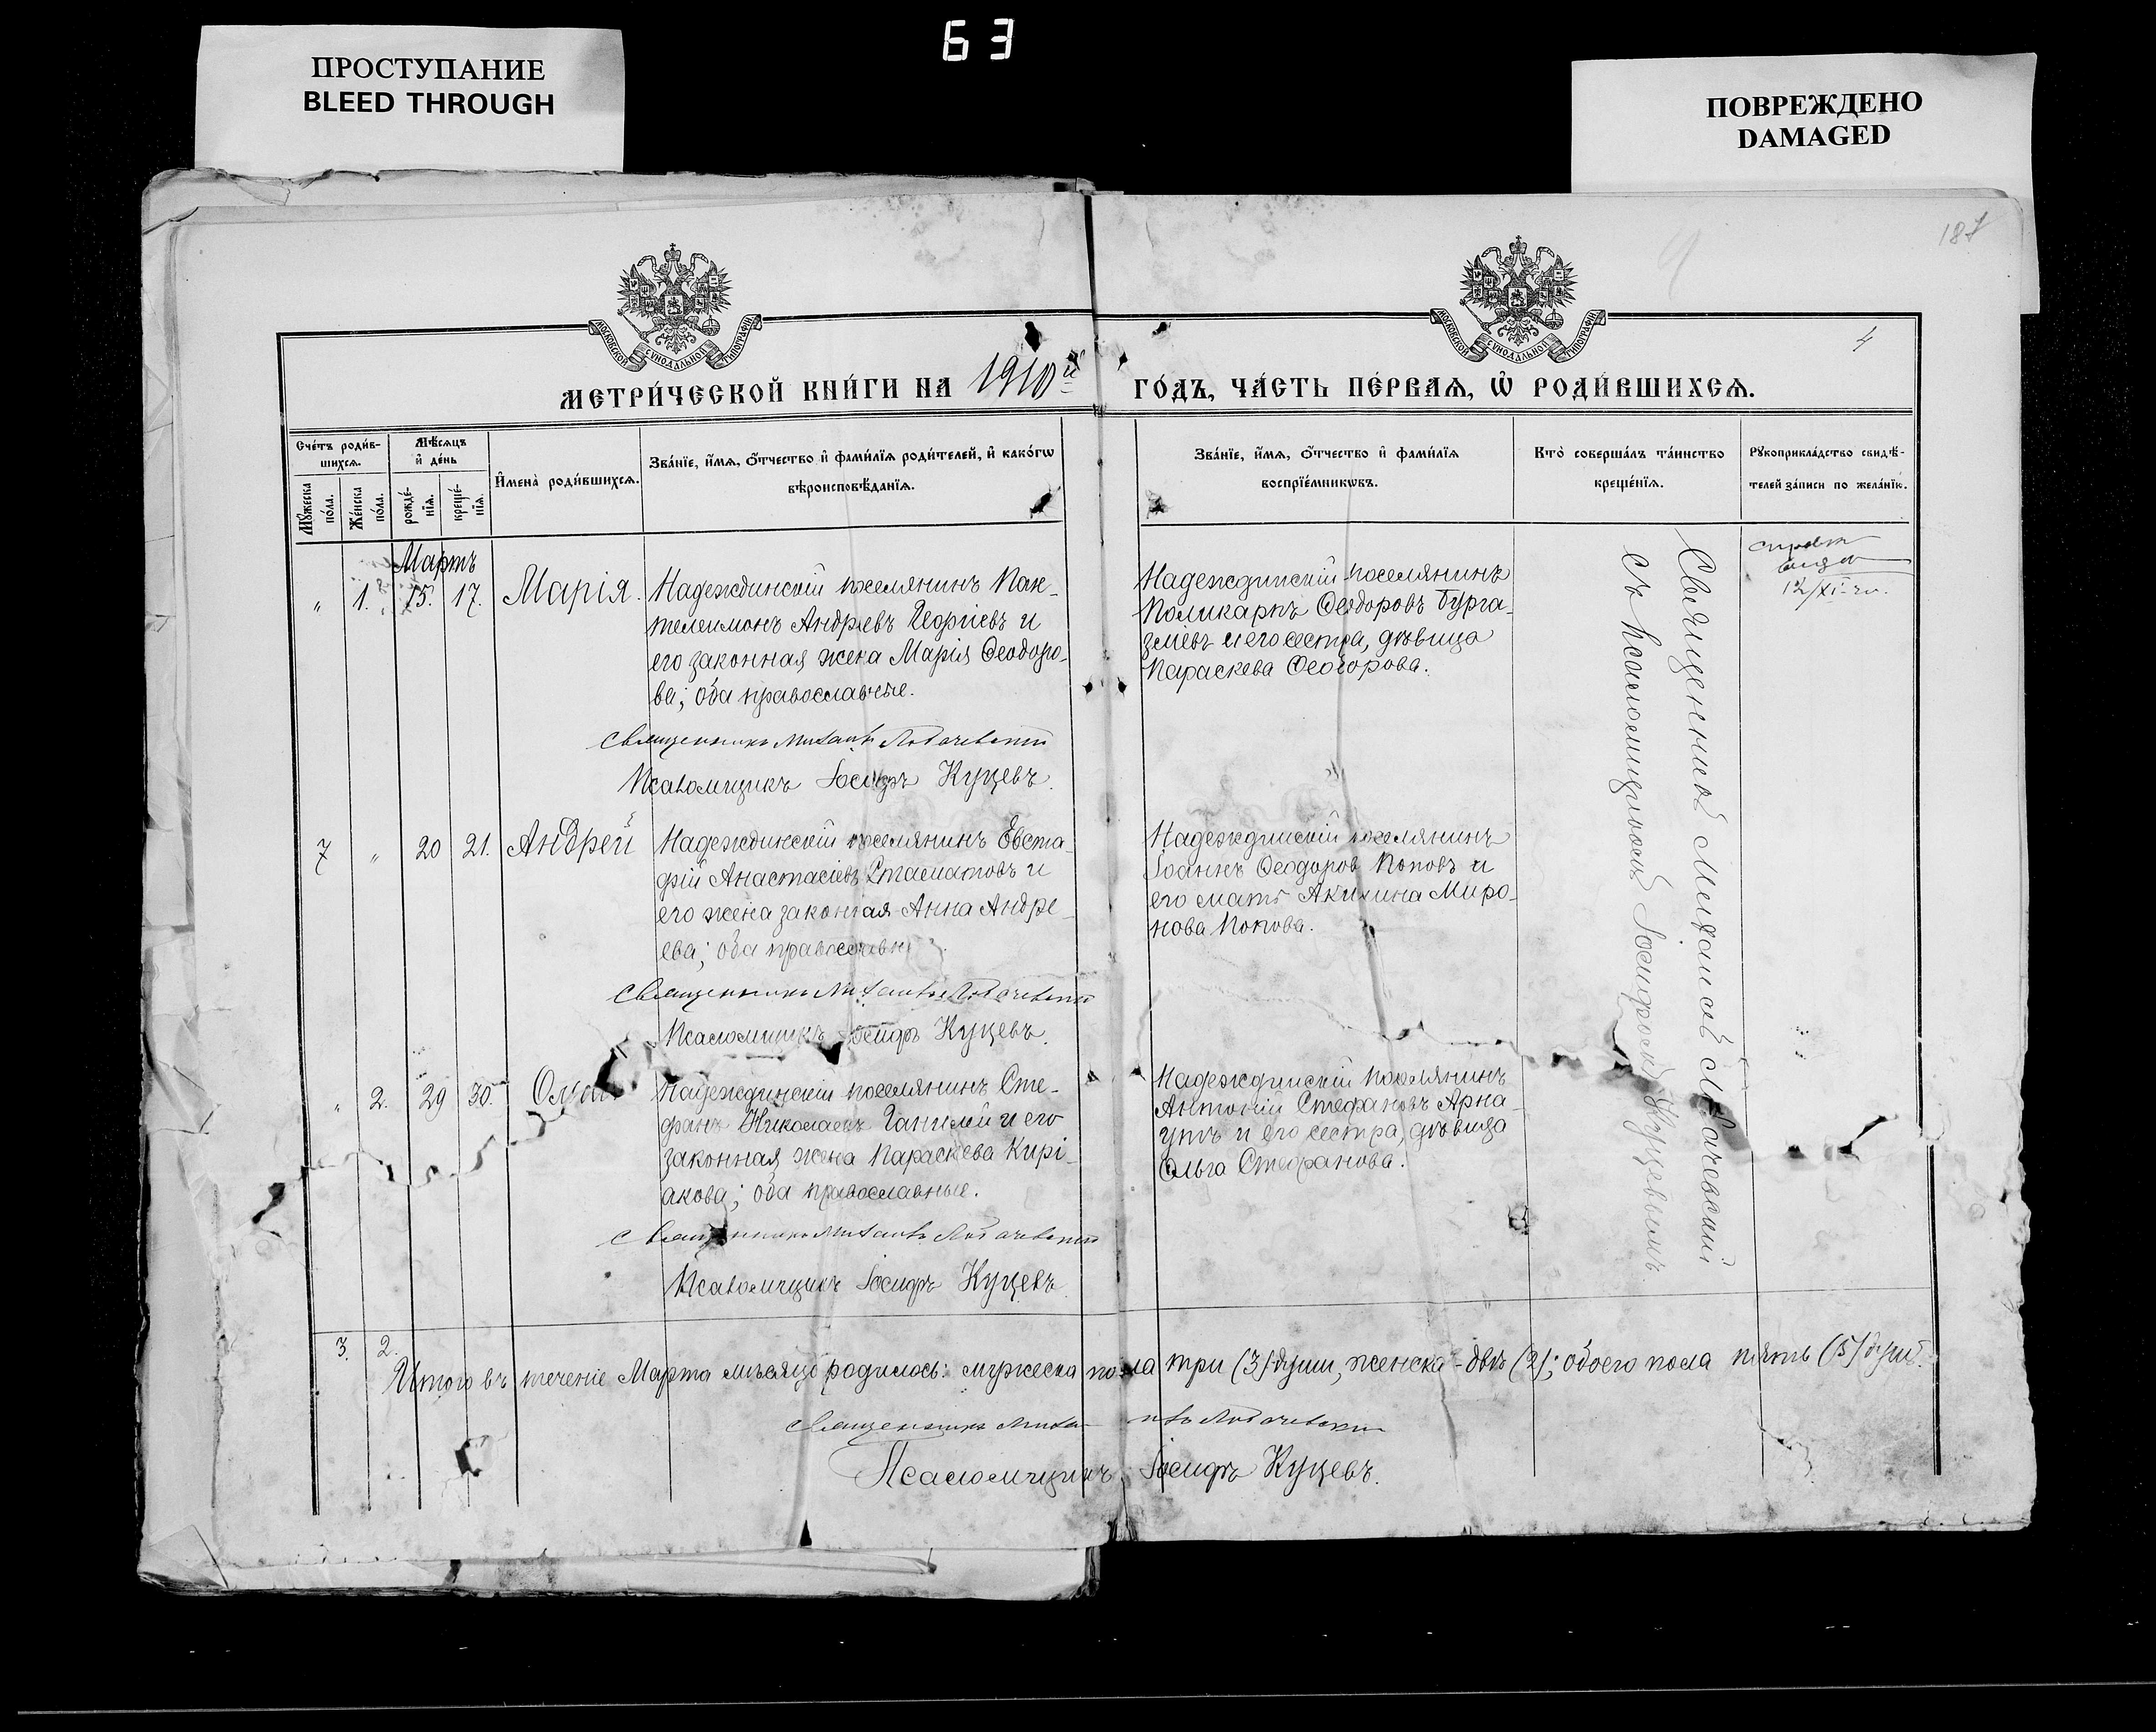 63
ПРОСТУПАНИЕ
BLEED THROUGH
ПОВРЕЖДЕНО
DAMAGED
187
4
МОСКОВСКОЙ СѴНОДАЛЬНОЙ ТИПОГРАФІИ
МОСКОВСКОЙ СѴНОДАЛЬНОЙ ТИПОГРАФІИ
МЕТРИ́ЧЕСКОЙ КНИ́ГИ НА 1910й ГО́ДЪ, ЧА́СТЬ ПЕ́РВАѦ, Ѿ РОДИ́ВШИХСѦ.
Сче́тъ роди́в-
шихсѧ.
Мꙋ́жеска по́ла.
Же́нска по́ла.
Мѣ́сѧцъ
и҆ де́нь
рожде́-
нїѧ.
креще́-
нїѧ.
И҆мена̀ роди́вшихсѧ.
Зва́нїе, и҆́мѧ, ѻ҆́тчество и҆ фами́лїѧ роди́телей, и҆ како́гѡ
вѣроисповѣ́данїѧ.
Зва́нїе, и҆́мѧ, ѻ҆́тчество и҆ фами́лїѧ
воспрїе́мникѡвъ.
Кто̀ соверша́лъ та́инство
креще́нїѧ.
Рꙋкоприкла́дство свидѣ́-
телей за́писи по жела́нїю.
Мартъ
" 1. 15. 17. Марія.
Надеждинскій поселянинъ Пан-
телеимонъ Андреевъ Георгіевъ и
его законная жена Марія Ѳеодоро-
ва; оба православные.
Священникъ Михаилъ Лобачевскій
Псаломщикъ Іосифъ Куцевъ.
Надеждинскій поселянинъ
Поликарпъ Ѳеодоровъ Бурга-
зліевъ и его сестра, дѣвица
Параскева Ѳеодорова.
12/XI
7 " 20 21. Андрей
Надеждинскій поселянинъ Евста-
фій Анастасіевъ Стаматовъ и
его жена законная Анна Андре-
ева; оба православн
Священникъ Михаилъ Лобачевскій
Псаломщикъ Іосифъ Куцевъ.
Надеждинскій поселянинъ
Іоаннъ Ѳеодоров Поповъ и
его мать Акилина Миро-
нова Попова.
" 2. 29 30.
Надеждинскій поселянинъ Сте-
фанъ Николаевъ и его
законная жена Параскева Кирі-
акова; оба православные.
Священникъ Михаилъ Лобачевскій
Псаломщикъ Іосифъ Куцевъ
Надеждинскій поселянинъ
Антоній Стефановъ Арна-
утъ и его сестра, дѣвица
Ольга Стефанова.
Священникъ Михаилъ Лобачевскій
съ псаломщикомъ Іосифомъ Куцевымъ.
3. 2.
Итого въ теченіе Марта мѣсяца родилось: мужеска пола три (3) души, женска - двѣ (2); обоего пола пять (5) душ.
Священникъ Михаилъ Лобачевскій
Псаломщикъ Іосифъ Куцевъ.